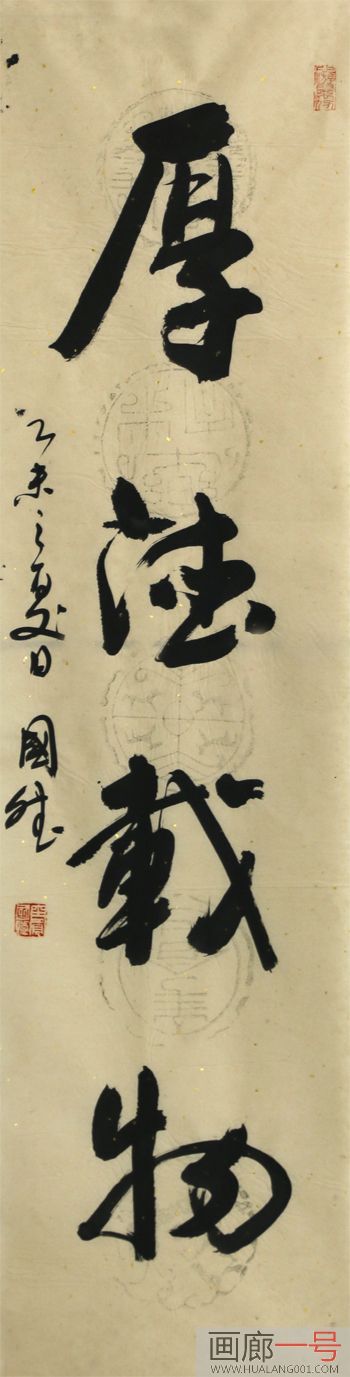 厚德载物
乙未之夏日 國胜
画廊一号
WWW.HUALANG001.COM